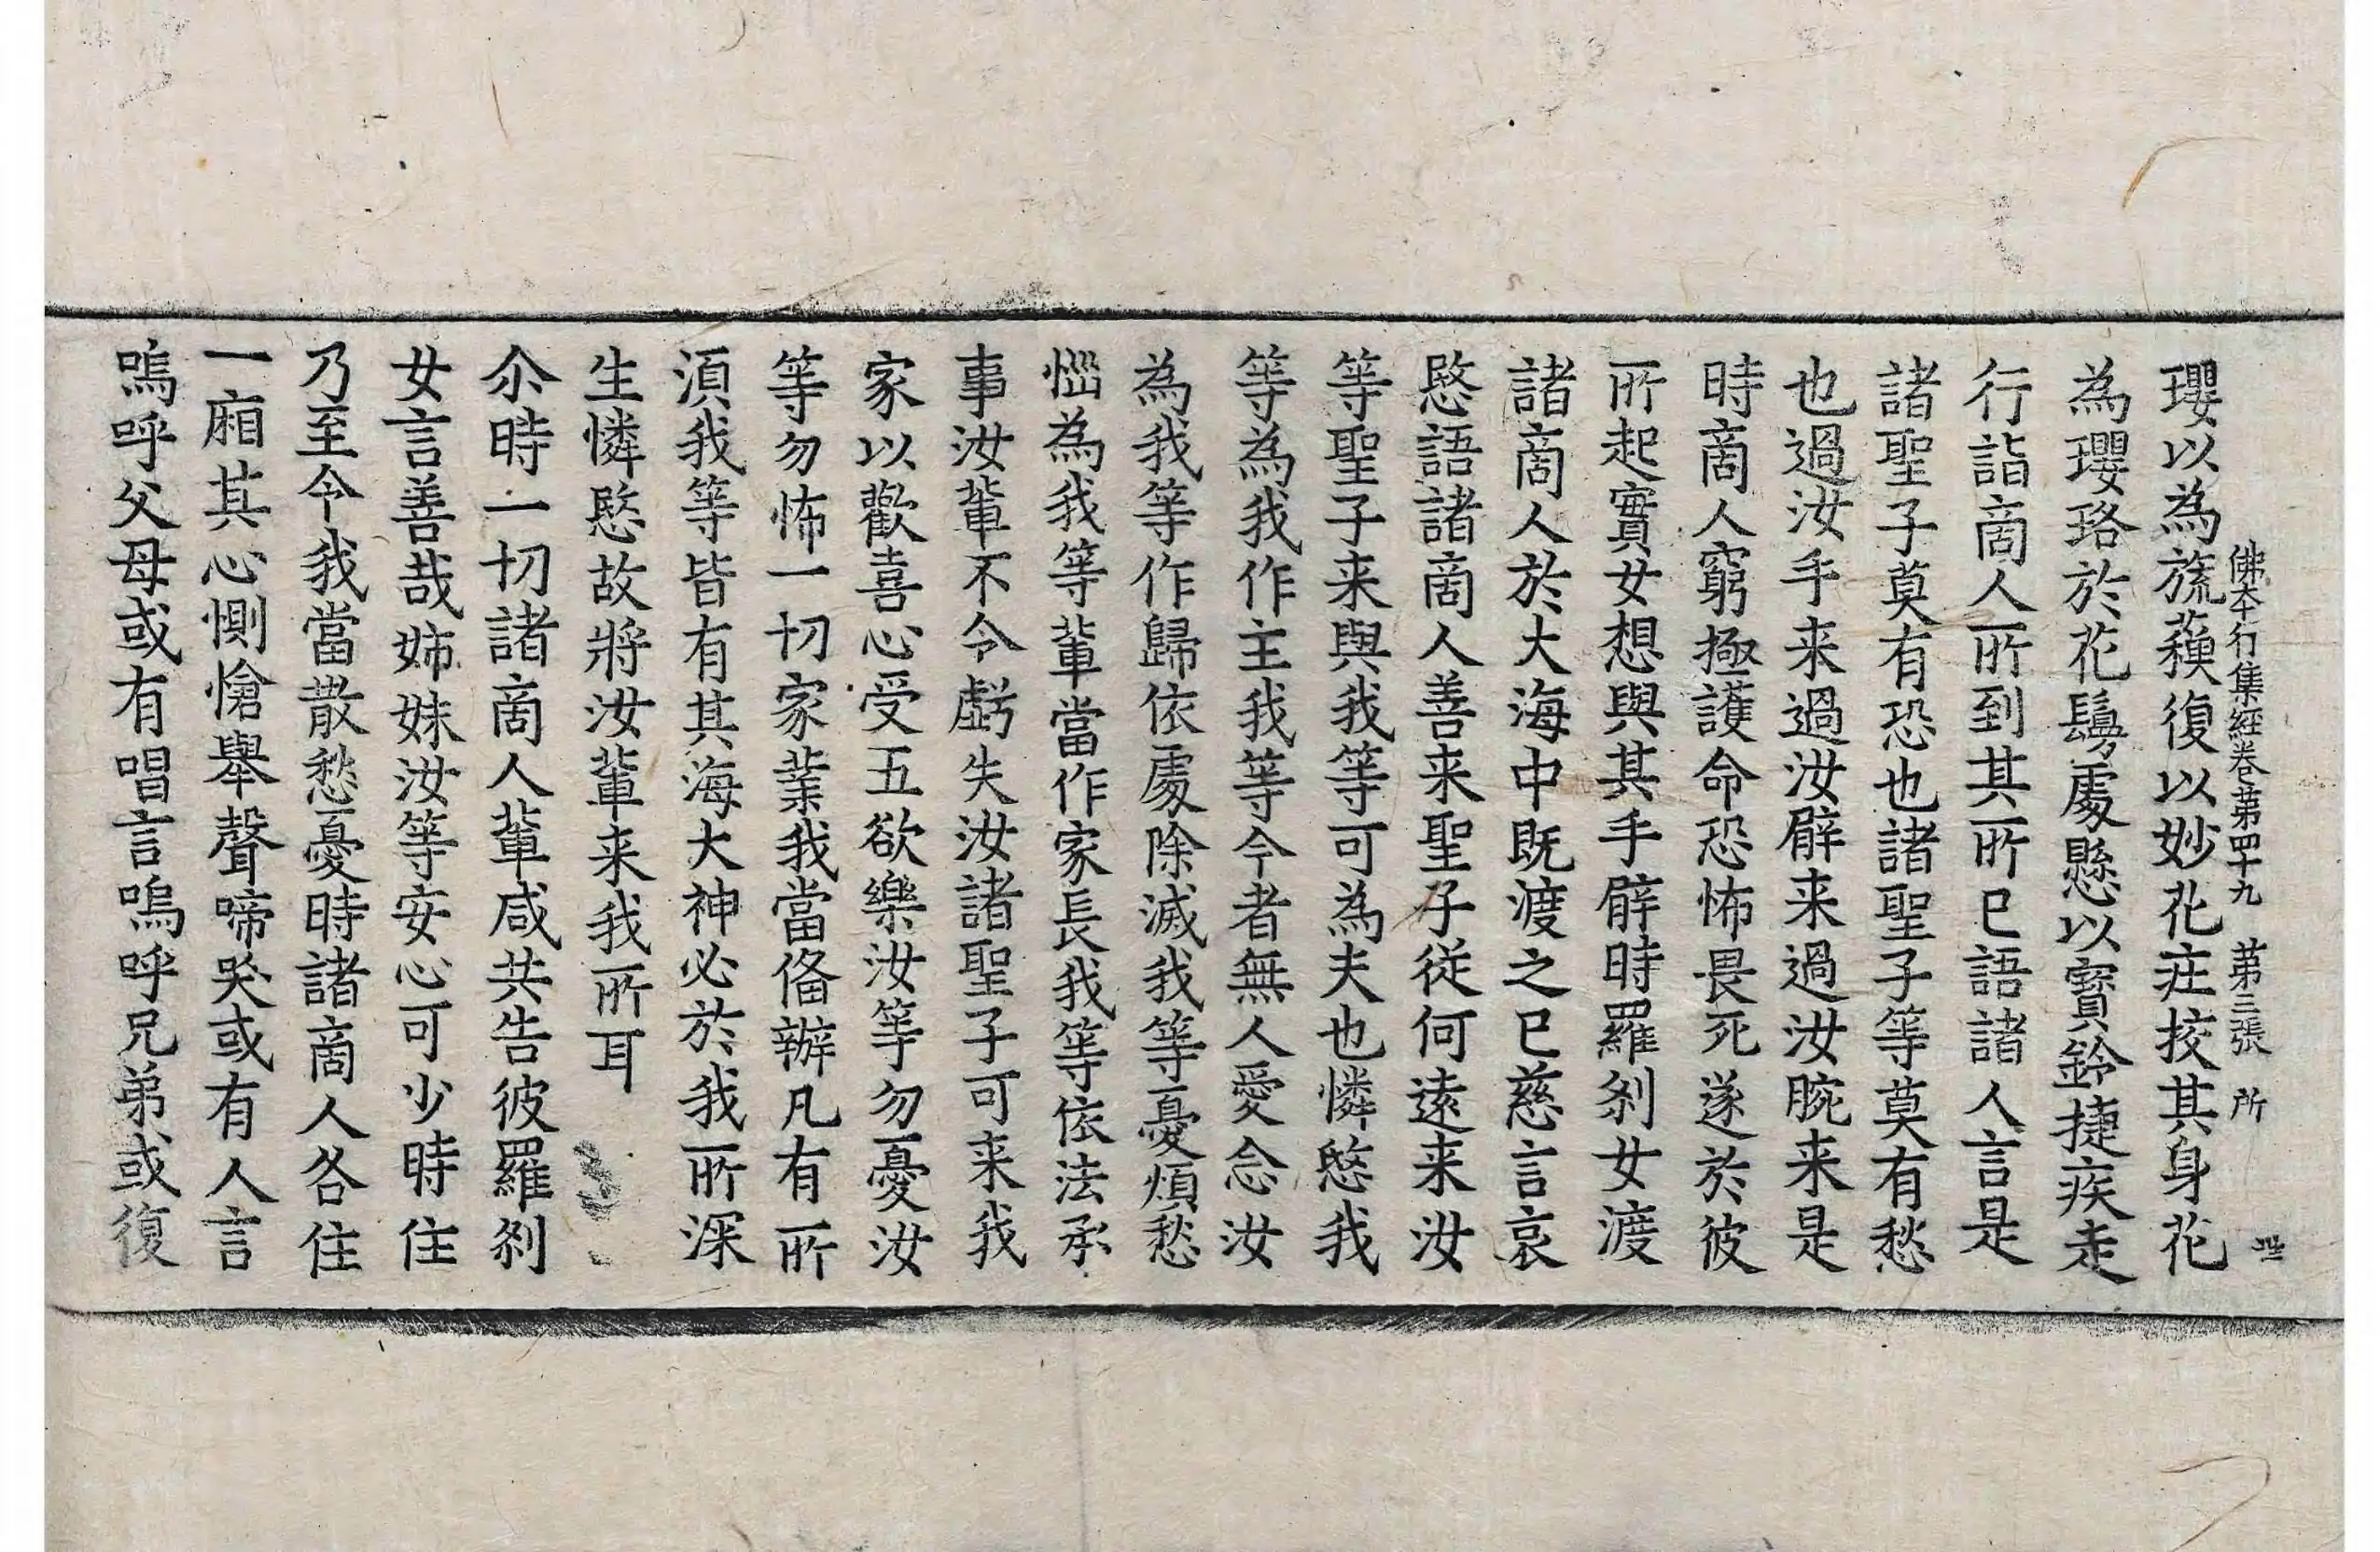 佛本行集経卷苐四十九 苐三張 所
瓔以為旒蘓復以妙花荘挍其身花
為瓔珞於花鬘處懸以寳鈴捷疾走
行詣啇人所到其所已語諸人言是
諸聖子莫有恐也諸聖子等莫有愁
也過汝手来過汝臂来過汝腕来是
時啇人窮極護命恐怖畏死遂於彼
所起實女想與其手臂時羅刹女渡
諸啇人於大海中既渡之已慈言哀
愍語諸啇人善来聖子従何遠来汝
等聖子来與我等可為夫也憐愍我
等為我作主我等今者無人愛念汝
為我等作歸依處除滅我等憂煩愁
惱為我等輩當作家長我等依法承
事汝輩不令虧失汝諸聖子可来我
家以歡喜心受五欲樂汝等勿憂汝
等勿怖一切家業我當俻辦凡有所
湏我等皆有其海大神必於我所深
生憐愍故將汝輩来我所耳
尒時一切諸啇人輩咸共告彼羅刹
女言善哉姊妹汝等安心可少時住
乃至令我當散愁憂時諸啇人各住
一廂其心惻愴舉聲啼哭或有人言
嗚呼父母或有唱言嗚呼兄弟或復